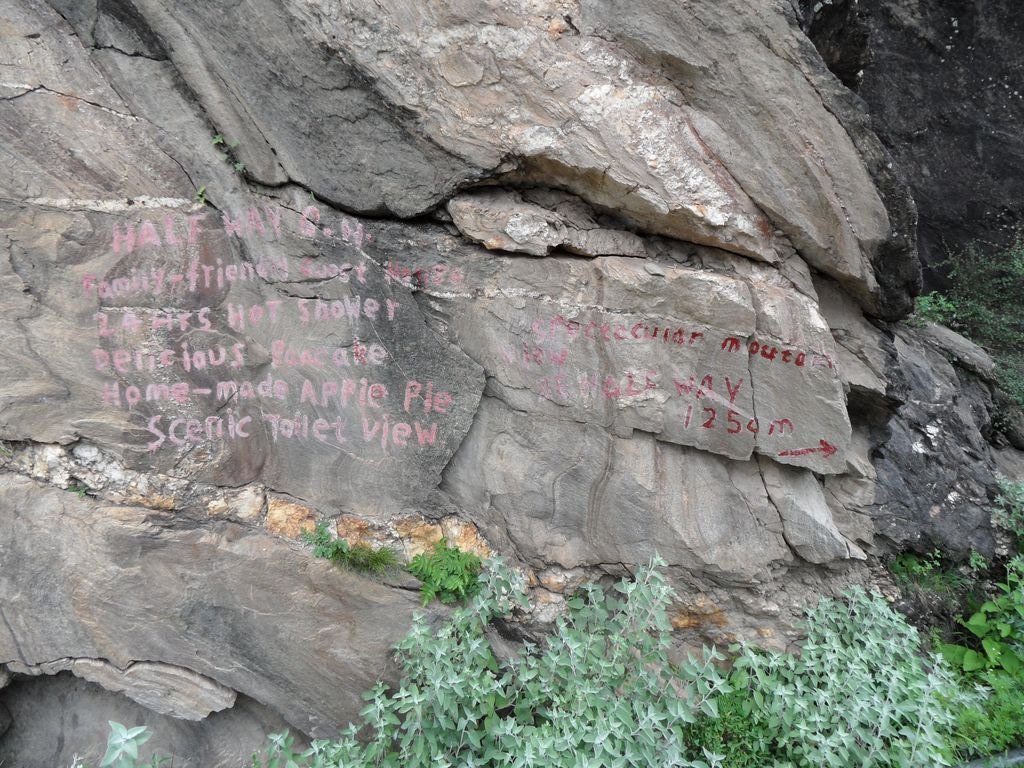 HALF WAY G.H.
Family-friendly Guest House
24 HrS HOT Shower
Delicious Pancake
Home-made APPle Pie
Scenic Toilet View
Spectacular mountain
view
at HALF WAY
125om